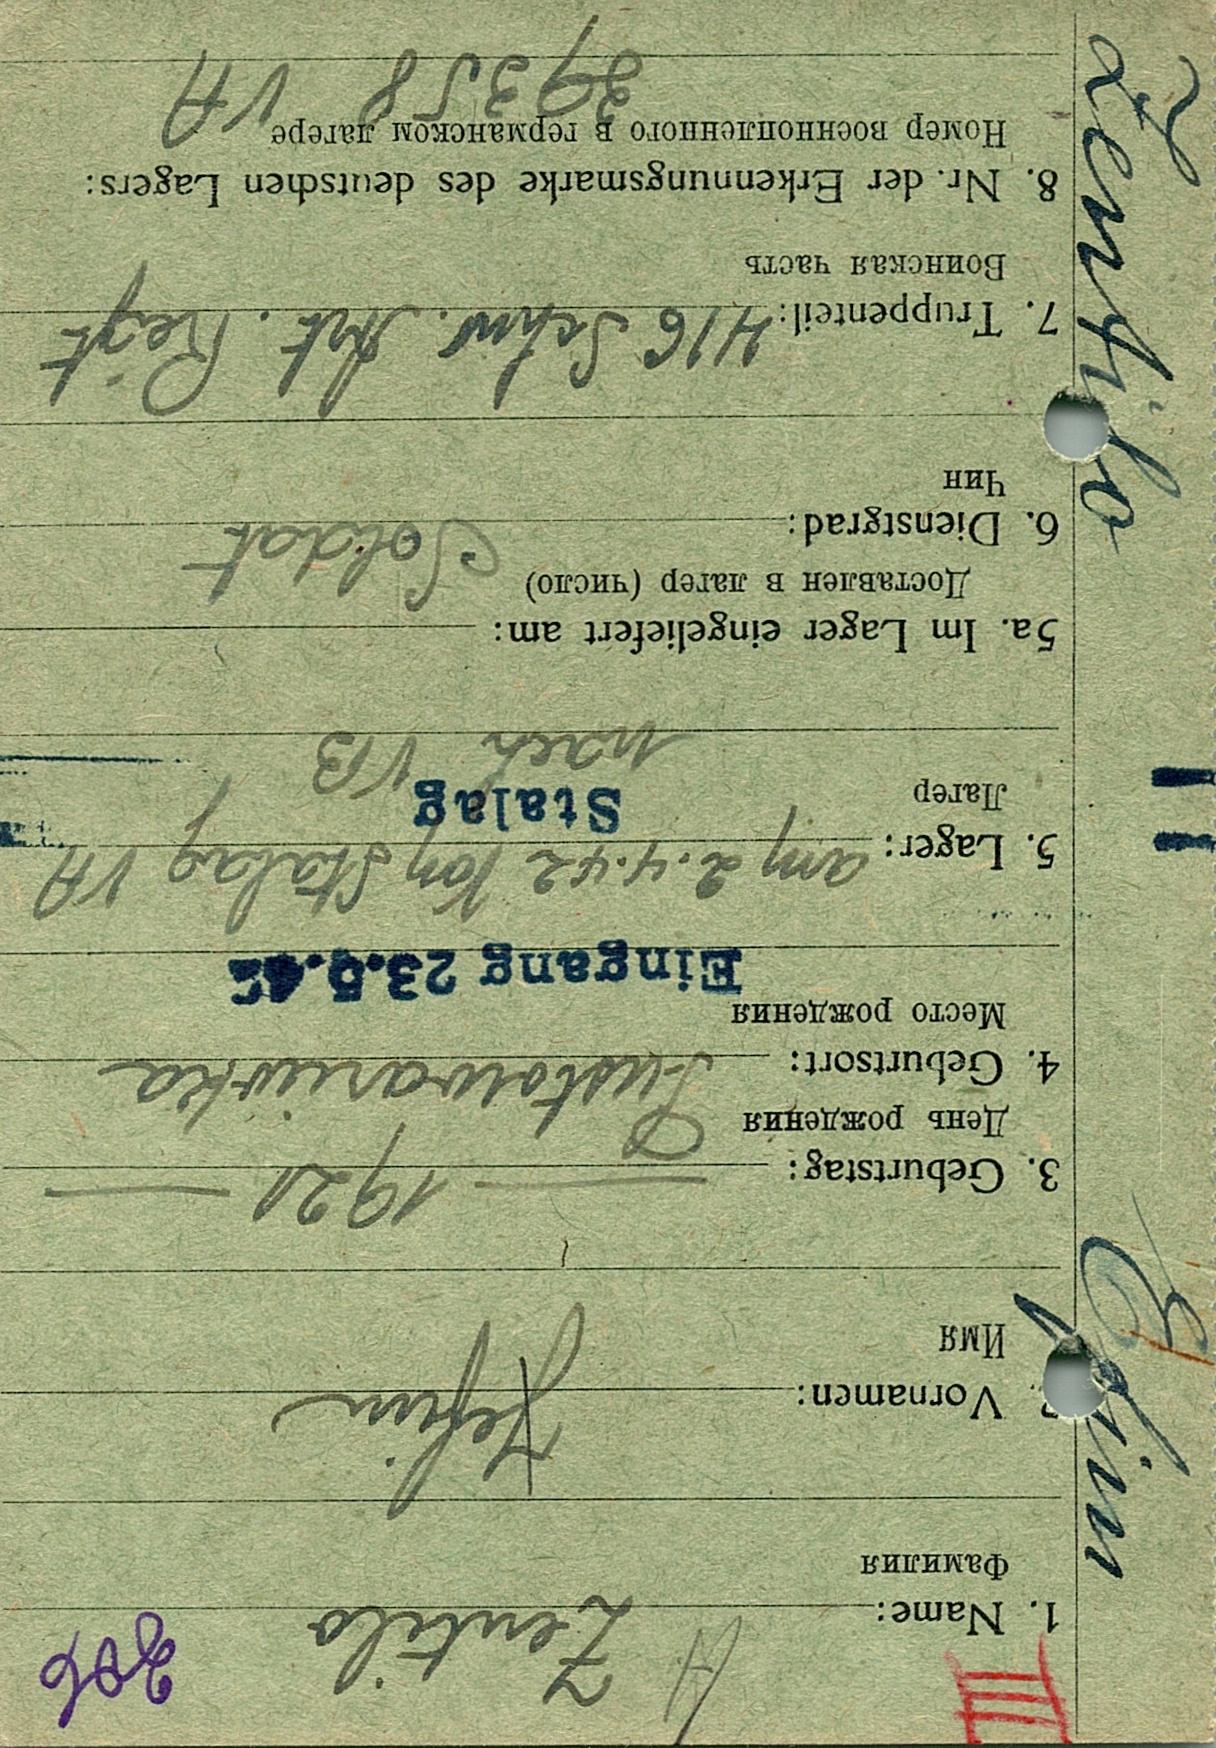 III
206
1. Name: Zentilo
Фамилия
2. Vornamen: Jefim
Имя
3. Geburtstag: 1921
День рождения
4. Geburtsort: Pustowariwka
Место рождения
Eingang 23.5.42
5. Lager: am 2.4.42 Von Stalag VA
Лагер
Stalag
nach VB
5a. Im Lager eingeliefert am:
Доставлен в лагер (число)
6. Dienstgrad: Soldat
Чин
7. Truppenteil: 416 Schw. Art. Regt
Воинская часть
8. Nr. der Erkennungsmarke des deutschen Lagers:
Номер военнопленного в германском лагере
39358 VA
Zentilo
Efim